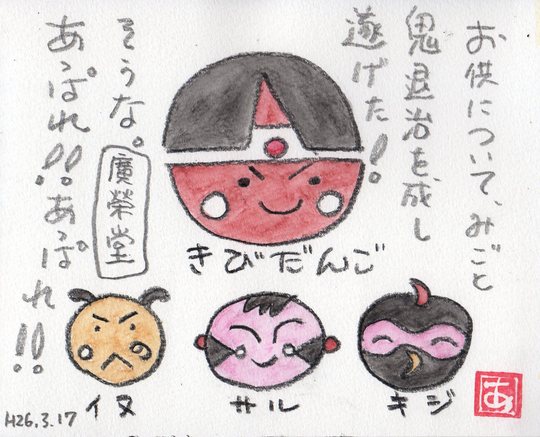 お供について、みごと
鬼退治を成し
遂げた!!
そうな。
あっぱれ!!あっぱれ!!
廣榮堂
きびだんご
イヌ
サル
キジ
H26.3.17
あ